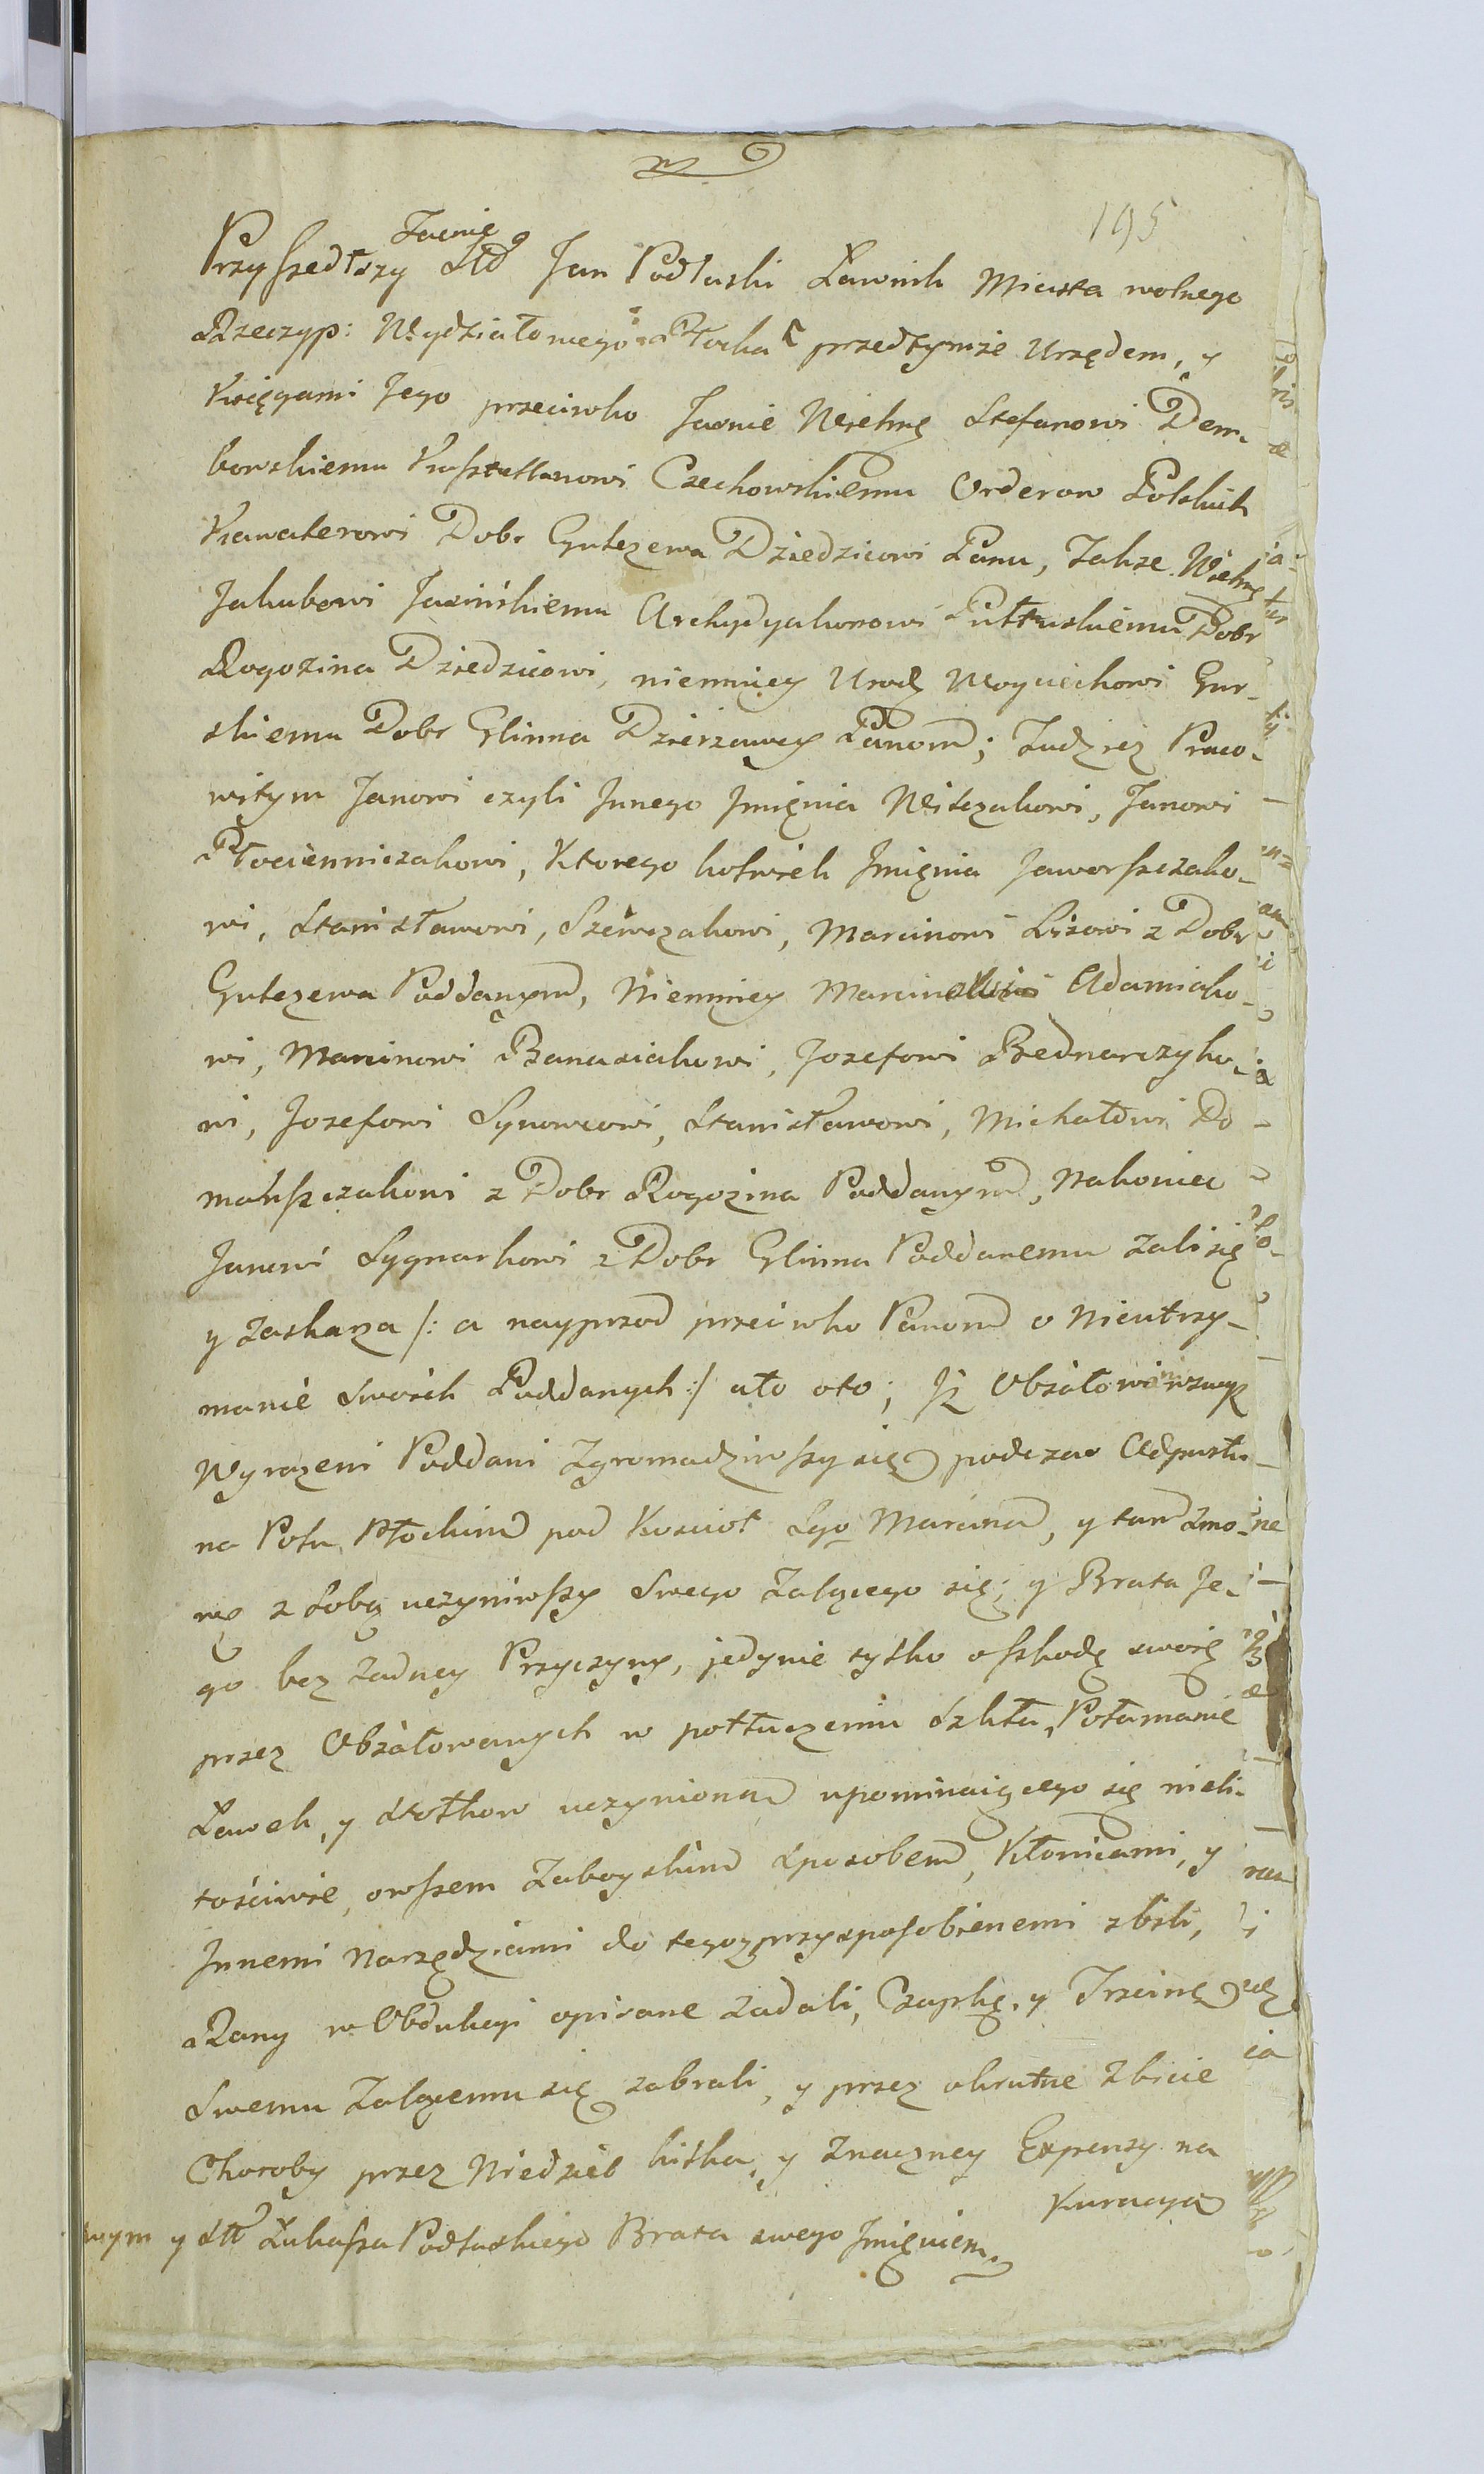 195
Jawnie
Przyszedłszy Sław Jan Podlaski Ławnik Miasta wolnego
Rzeczyp: Wydziałowego Płocka przedtymże Urzędem, y
Księgami Jego przeciwko Jaśnie Wielmę Stefanowi Dem-
bowskiemu Kasztellanowi Czechowskiemu Orderow Polskich
Kawalerowi Dobr Gulczewa Dziedzicowi Panu, Także Wielmę
Jakubowi Jasińskiemu Archydyakonowi Pułtuskiemu Dobr
Rogozina Dziedzicowi, niemniey Urodz Woyciechowi Gur-
skiemu Dobr Glinna Dzierzawcy Panom; Tudzież Praco-
witym Janowi czyli Innego Imięnia Witczakowi, Janowi
Płocienniczakowi, Ktorego kolwiek Imięnia Jaworszczako-
wi, Stanisławowi, Szewczakowi, Marcinowi Lisowi z Dobr
Gulczewa Poddanym, Niemniey Marcinowi Adamiako-
wi, Marcinowi Banasiakowi, Jozefowi Bednarczyko-
wi, Jozefowi Synowcowi, Stanisławowi, Michałowi Do-
mańszczakowi z Dobr Rogozina Poddanym, Nakoniec
Janowi Sygnarkowi z Dobr Glinna Poddanemu żali się
y zaskarza /: a nayprzod przeciwko Panom o Nieutrzy-
manie Swoich Poddanych :/ a to oto; Iż Obżałowani wzwyż
Wyrazeni Poddani Zgromadziwszy się podczas Odpustu
na Polu Płockim pod Koscioł Sgo Marcina, y tam zmo-
wę z Sobą uczyniwszy Swego Zalącego się, y Brata Je-
go bez żadney Przyczyny, jedynie tylko o szkodę swoię
przez Obżałowanych w potłuczeniu szkła, Połamanie
Ławek, y stołkow uczynioną upominaiącego się nieli-
tościwie, owszem Zaboyskim sposobem, Kłonicami, y
Innemi Narzędziami do tegoz przysposobienemi zbili,
Rany w Obdukcyi opisane zadali, Czapkę, y Trzcinę
Swemu Zalącemu się zabrali, y przez okrutne zbicie
Choroby przez Niedziel kilka, y Znaczney Expensy na
Kuracyą
y Sł Łukasza Podlaskiego Brata swego Imięniem